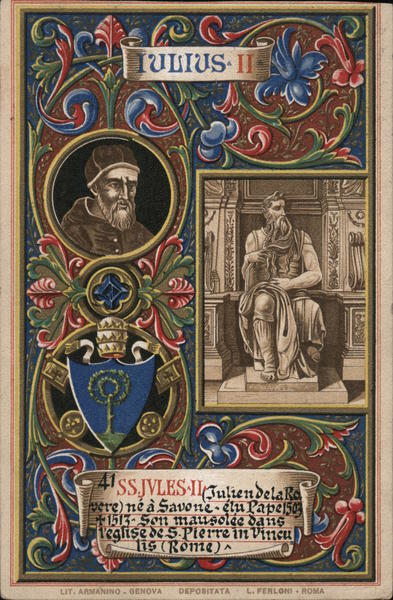 IULIUS · II
41 SS. JVLES · II (Julien de la Ro
vere) né à Savone - élu Pape 1503
† 1513 - Son mausolée dans
l'eglise de S. Pierre in Vincu
lis (Rome) ^
LIT. ARMANINO - GENOVA DEPOSITATA L. FERLONI - ROMA